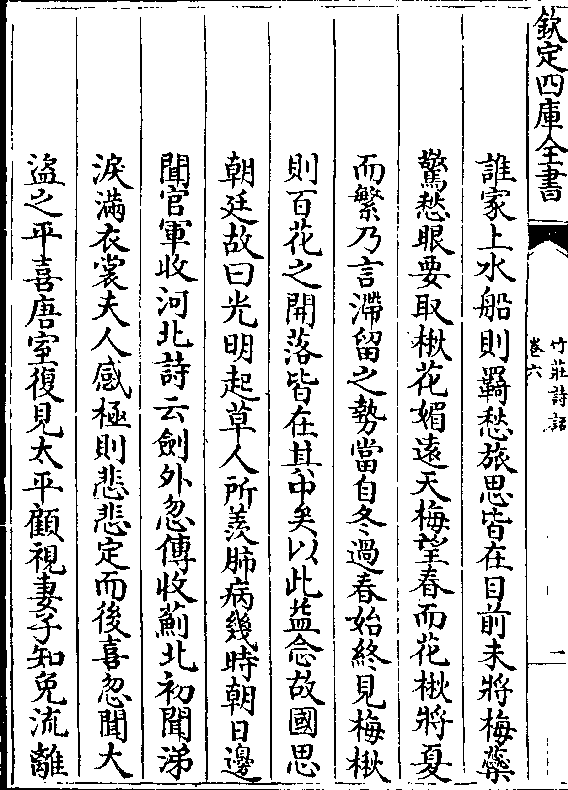 欽定四庫全書
竹莊詩話
卷六
一
誰家上水船則羇愁旅思皆在目前未將梅蘂
驚愁眼要取椒花媚遠天梅望春而花椒將夏
而繁乃言滯留之勢當自冬過春始終見梅椒
則百花之開落皆在其中矣以此益念故國思
朝廷故曰光明起草人所羨肺病幾時朝日邊
聞官軍收河北詩云劍外忽傳收薊北初聞涕
淚滿衣裳夫人感極則悲悲定而後喜忽聞大
盜之平喜唐室復見太平顧視妻子知免流離